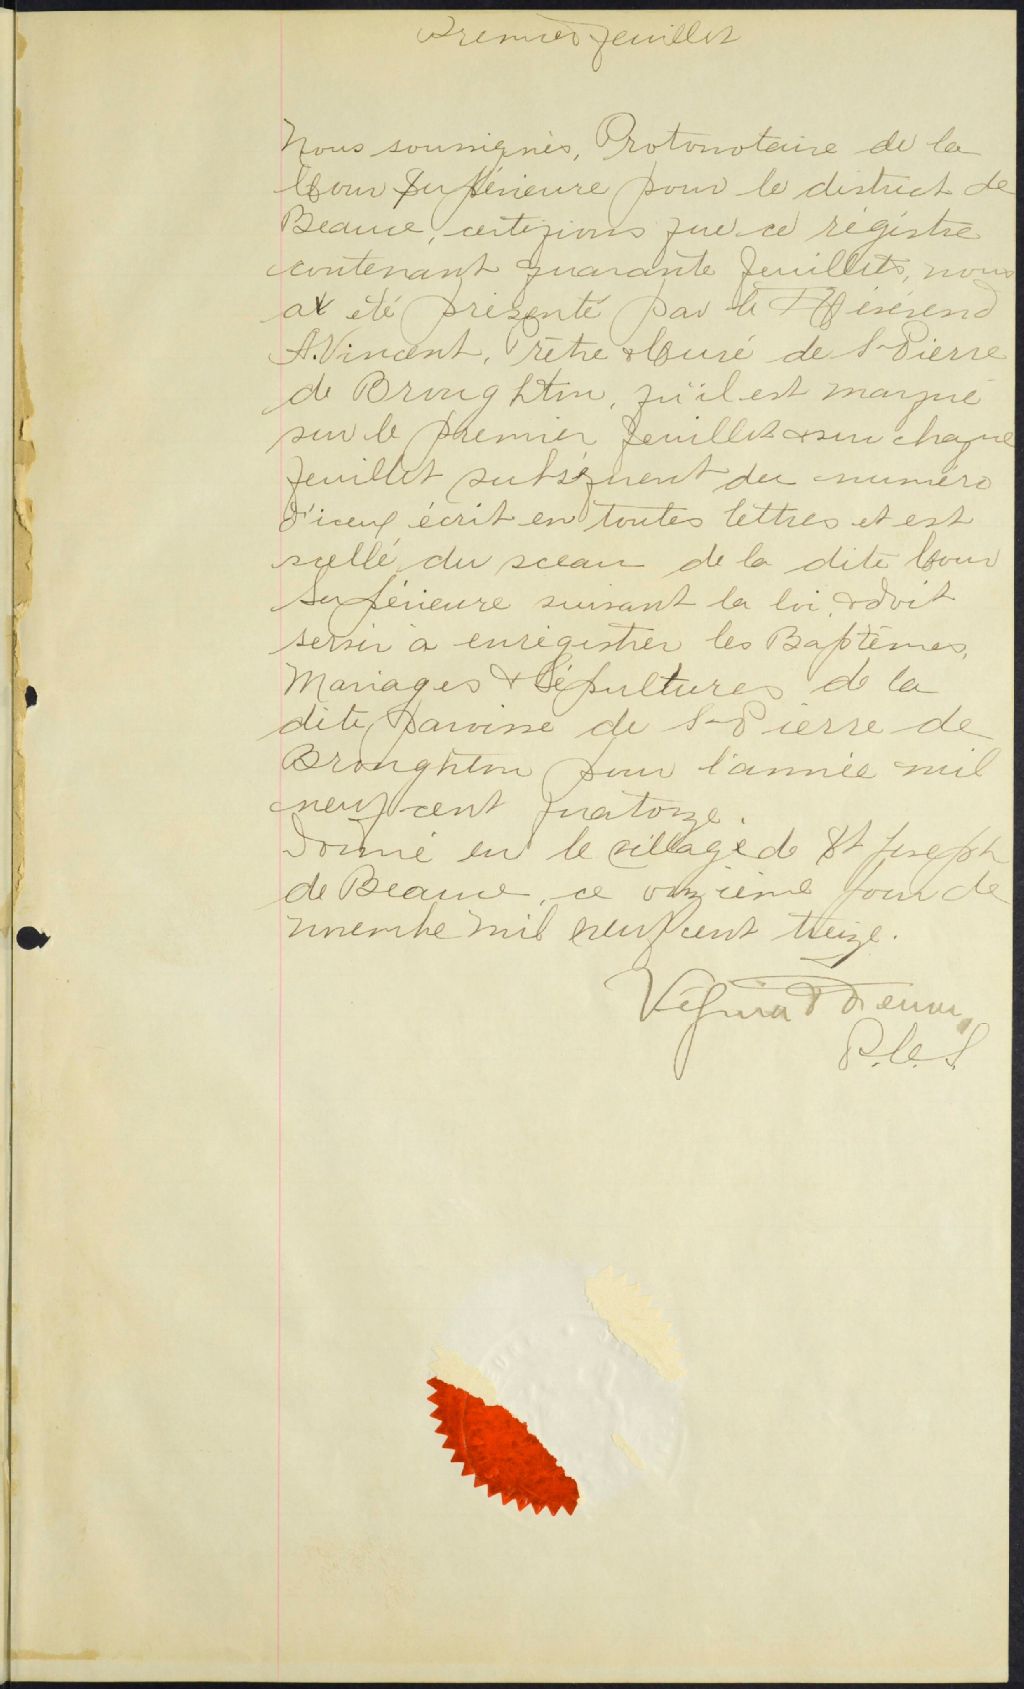 Premier feuillet
Nous soussignés, Protonotaire de la
Cour Supérieure pour le district de
Beauce, certifions que ce régistre
contenant quarante feuillets, nous
a été présenté par le Révérend
A. Vincent, Prêtre & Curé de St-Pierre
de Broughton, qu'il est marqué
sur le premier feuillet & sur chaque
feuillet subséquent du numéro
d'iceux écrit en toutes lettres et est
scellé du sceau de la dite Cour
Supérieure suivant la loi, & doit
servir à enrégistrer les Baptêmes,
Mariages & Sépultures de la
dite paroisse de St-Pierre de
Broughton pour l'année mil
neuf cent quatorze.
Donné en le village de St Joseph
de Beauce, ce onzième jour de
novembre mil neuf cent treize.
Vézina &
P.C.S.